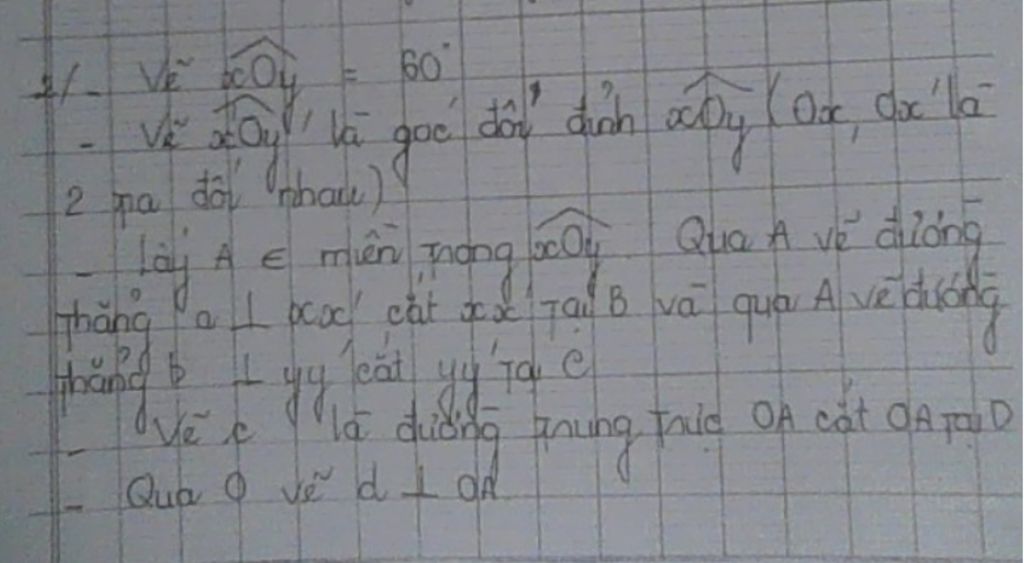 1/- Vẽ xOy = 60°
- Vẽ x'Oy' là góc đối đỉnh xOy (Ox, Ox' là
2 tia đối nhau)
- Lấy A ∈ miền trong xOy Qua A vẽ đường
thẳng a ⊥ xx' cắt xx' tại B và qua A vẽ đường
thẳng b ⊥ yy' cắt yy' tại C
- Vẽ c là đường trung trực OA cắt OA tại D
- Qua O vẽ d ⊥ OA